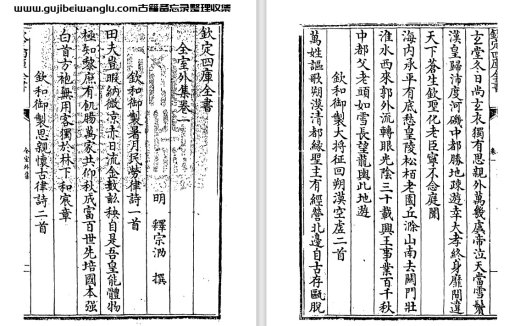 www.gujibeiwanglu.com古籍备忘录整理收集
欽定四庫全書
全室外集卷一
明 釋宗泐 撰
欽和御製暑月民勞律詩一首
田夫豈暇納微凉赤日流金救秧自是吾皇能體物
極知黎庶有飢腸萬家共仰秋成富百世先培國本强
白首方袍無用客獨於林下和宸章
欽和御製思親懷古律詩二首
全室外集
欽定四庫全書
卷一
玄堂冬日尚玄衣獨有思親外萬幾虞帝泣天當雪鬢
漢皇歸沛度河磯中都勝地疎遊幸大孝終身靡間違
天下蒼生欽聖化老臣寧不念庭闈
海内承平有感悲皇陵松栢老園丘滁山南去關門壯
淮水西來郭外流轉眼光陰三十載興王事業百千秋
中都父老頭如雪長望龍輿此地遊
欽和御製大將征回朔漠空虛二首
萬姓謳歌朔漠清都緣聖主有經營北邊自古存甌脫